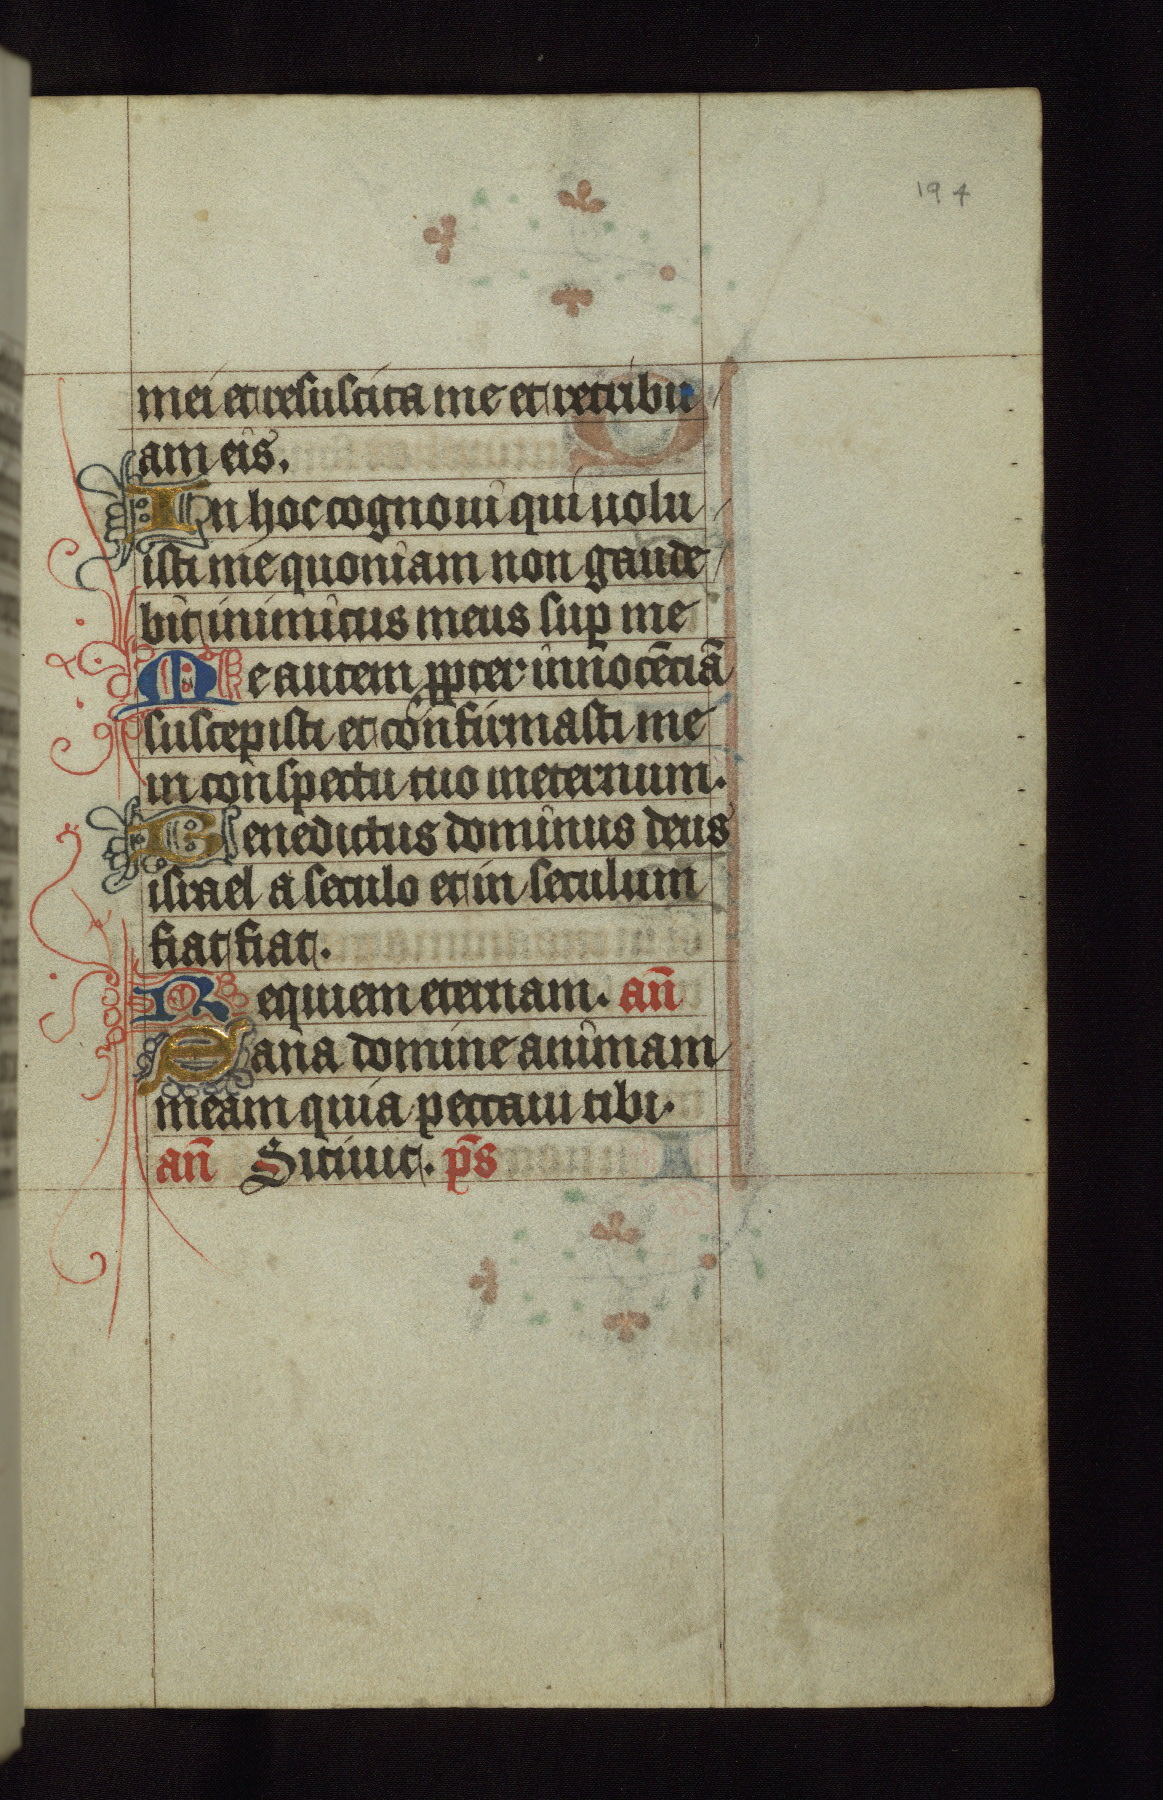 194
mei et resuscita me et retribu
am eis.
In hoc cognoui qui uolu
isti me quoniam non gaude
bit inimicus meus sup me
Me autem ꝓpter innocētiā
suscepisti et confirmasti me
in conspectu tuo ineternum.
Benedictus dominus deus
israel a seculo et in seculum
fiat fiat.
Requiem eternam. an̄
Sana domine animam
meam quia peccaui tibi.
an̄ Sitiuit. ps̄